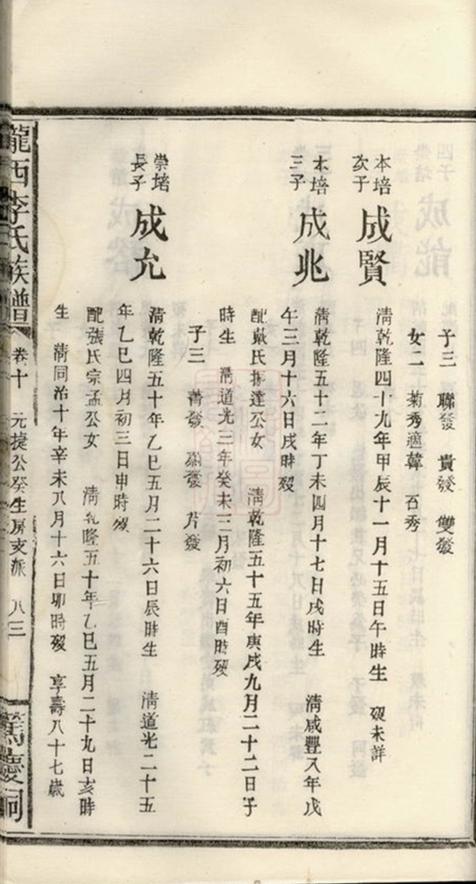 子三 聯發 貴發 雙發
女二 菊秀適韓 石秀
本培
次子
成賢
清乾隆四十九年甲辰十一月十五日午時生 歿未詳
本培
三子
成兆
清乾隆五十二年丁未四月十七日戌時生 清咸豐八年戊
午三月十六日戌時歿
配戴氏振達公女 清乾隆五十五年庚戌九月二十二日子
時生 清道光三年癸未三月初六日酉時歿
子三 善發 發 片發
崇堵
長子
成允
清乾隆五十年乙巳五月二十六日辰時生 清道光二十五
年乙巳四月初三日申時歿
配張氏宗孟公女 清乾隆五十年乙巳五月二十九日亥時
生 清同治十年辛未八月十六日卯時歿 享壽八十七歲
隴西李氏族譜
卷十 元捷公癸生房支派 八三
篤慶祠